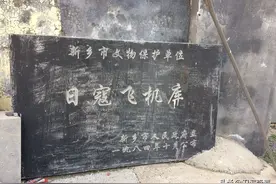 新乡市文物保护单位
日寇飞机库
新乡市人民政府
一九八四年十月